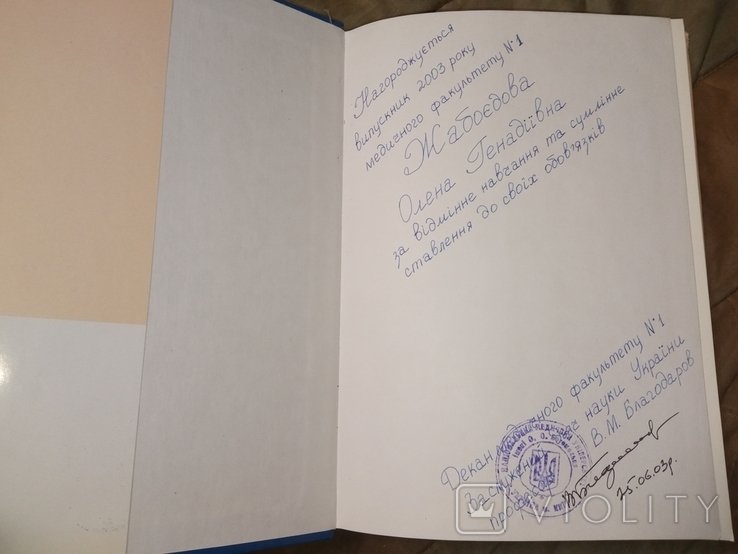 Нагороджується
випускник 2003 року
медичного факультету №1
Жабоєдова
Олена Генадіївна
за відмінне навчання та сумлінне
ставлення до своїх обов'язків
Декан медичного факультету №1
Заслужений діяч науки України
проф. В.М. Благодаров
25.06.03р.
VIOLITY